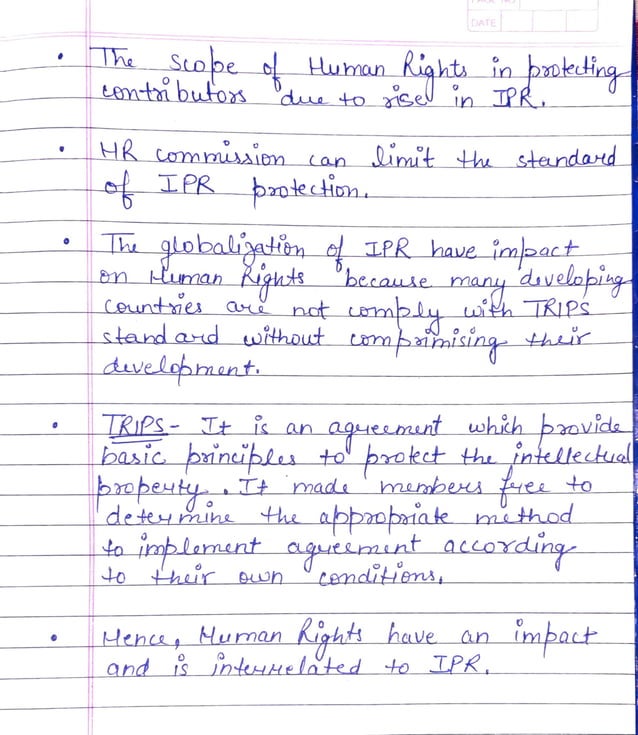 PAGE NO
DATE
• The scope of Human Rights in protecting
contributors due to rise in IPR.
• HR commission can limit the standard
of IPR protection.
• The globalization of IPR have impact
on Human Rights because many developing
countries are not comply with TRIPS
standard without comprimising their
development.
• TRIPS - It is an agreement which provide
basic principles to protect the intellectual
property. It made members free to
determine the appropriate method
to implement agreement according
to their own conditions.
• Hence, Human Rights have an impact
and is interrelated to IPR.